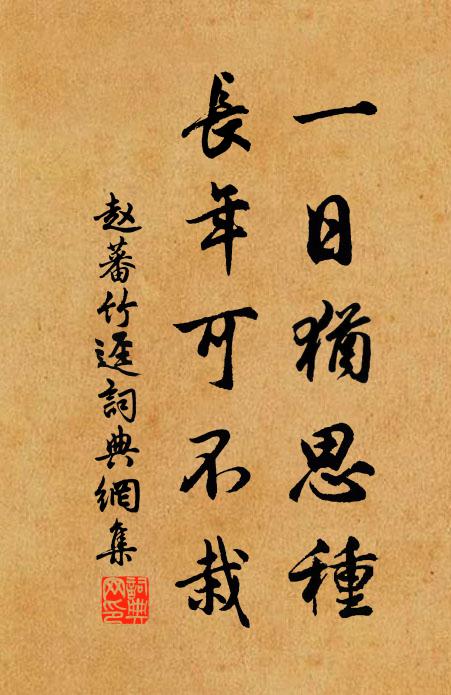 一日猶思種
長年可不栽
赵蕃竹逕詞典網集
詞典網印